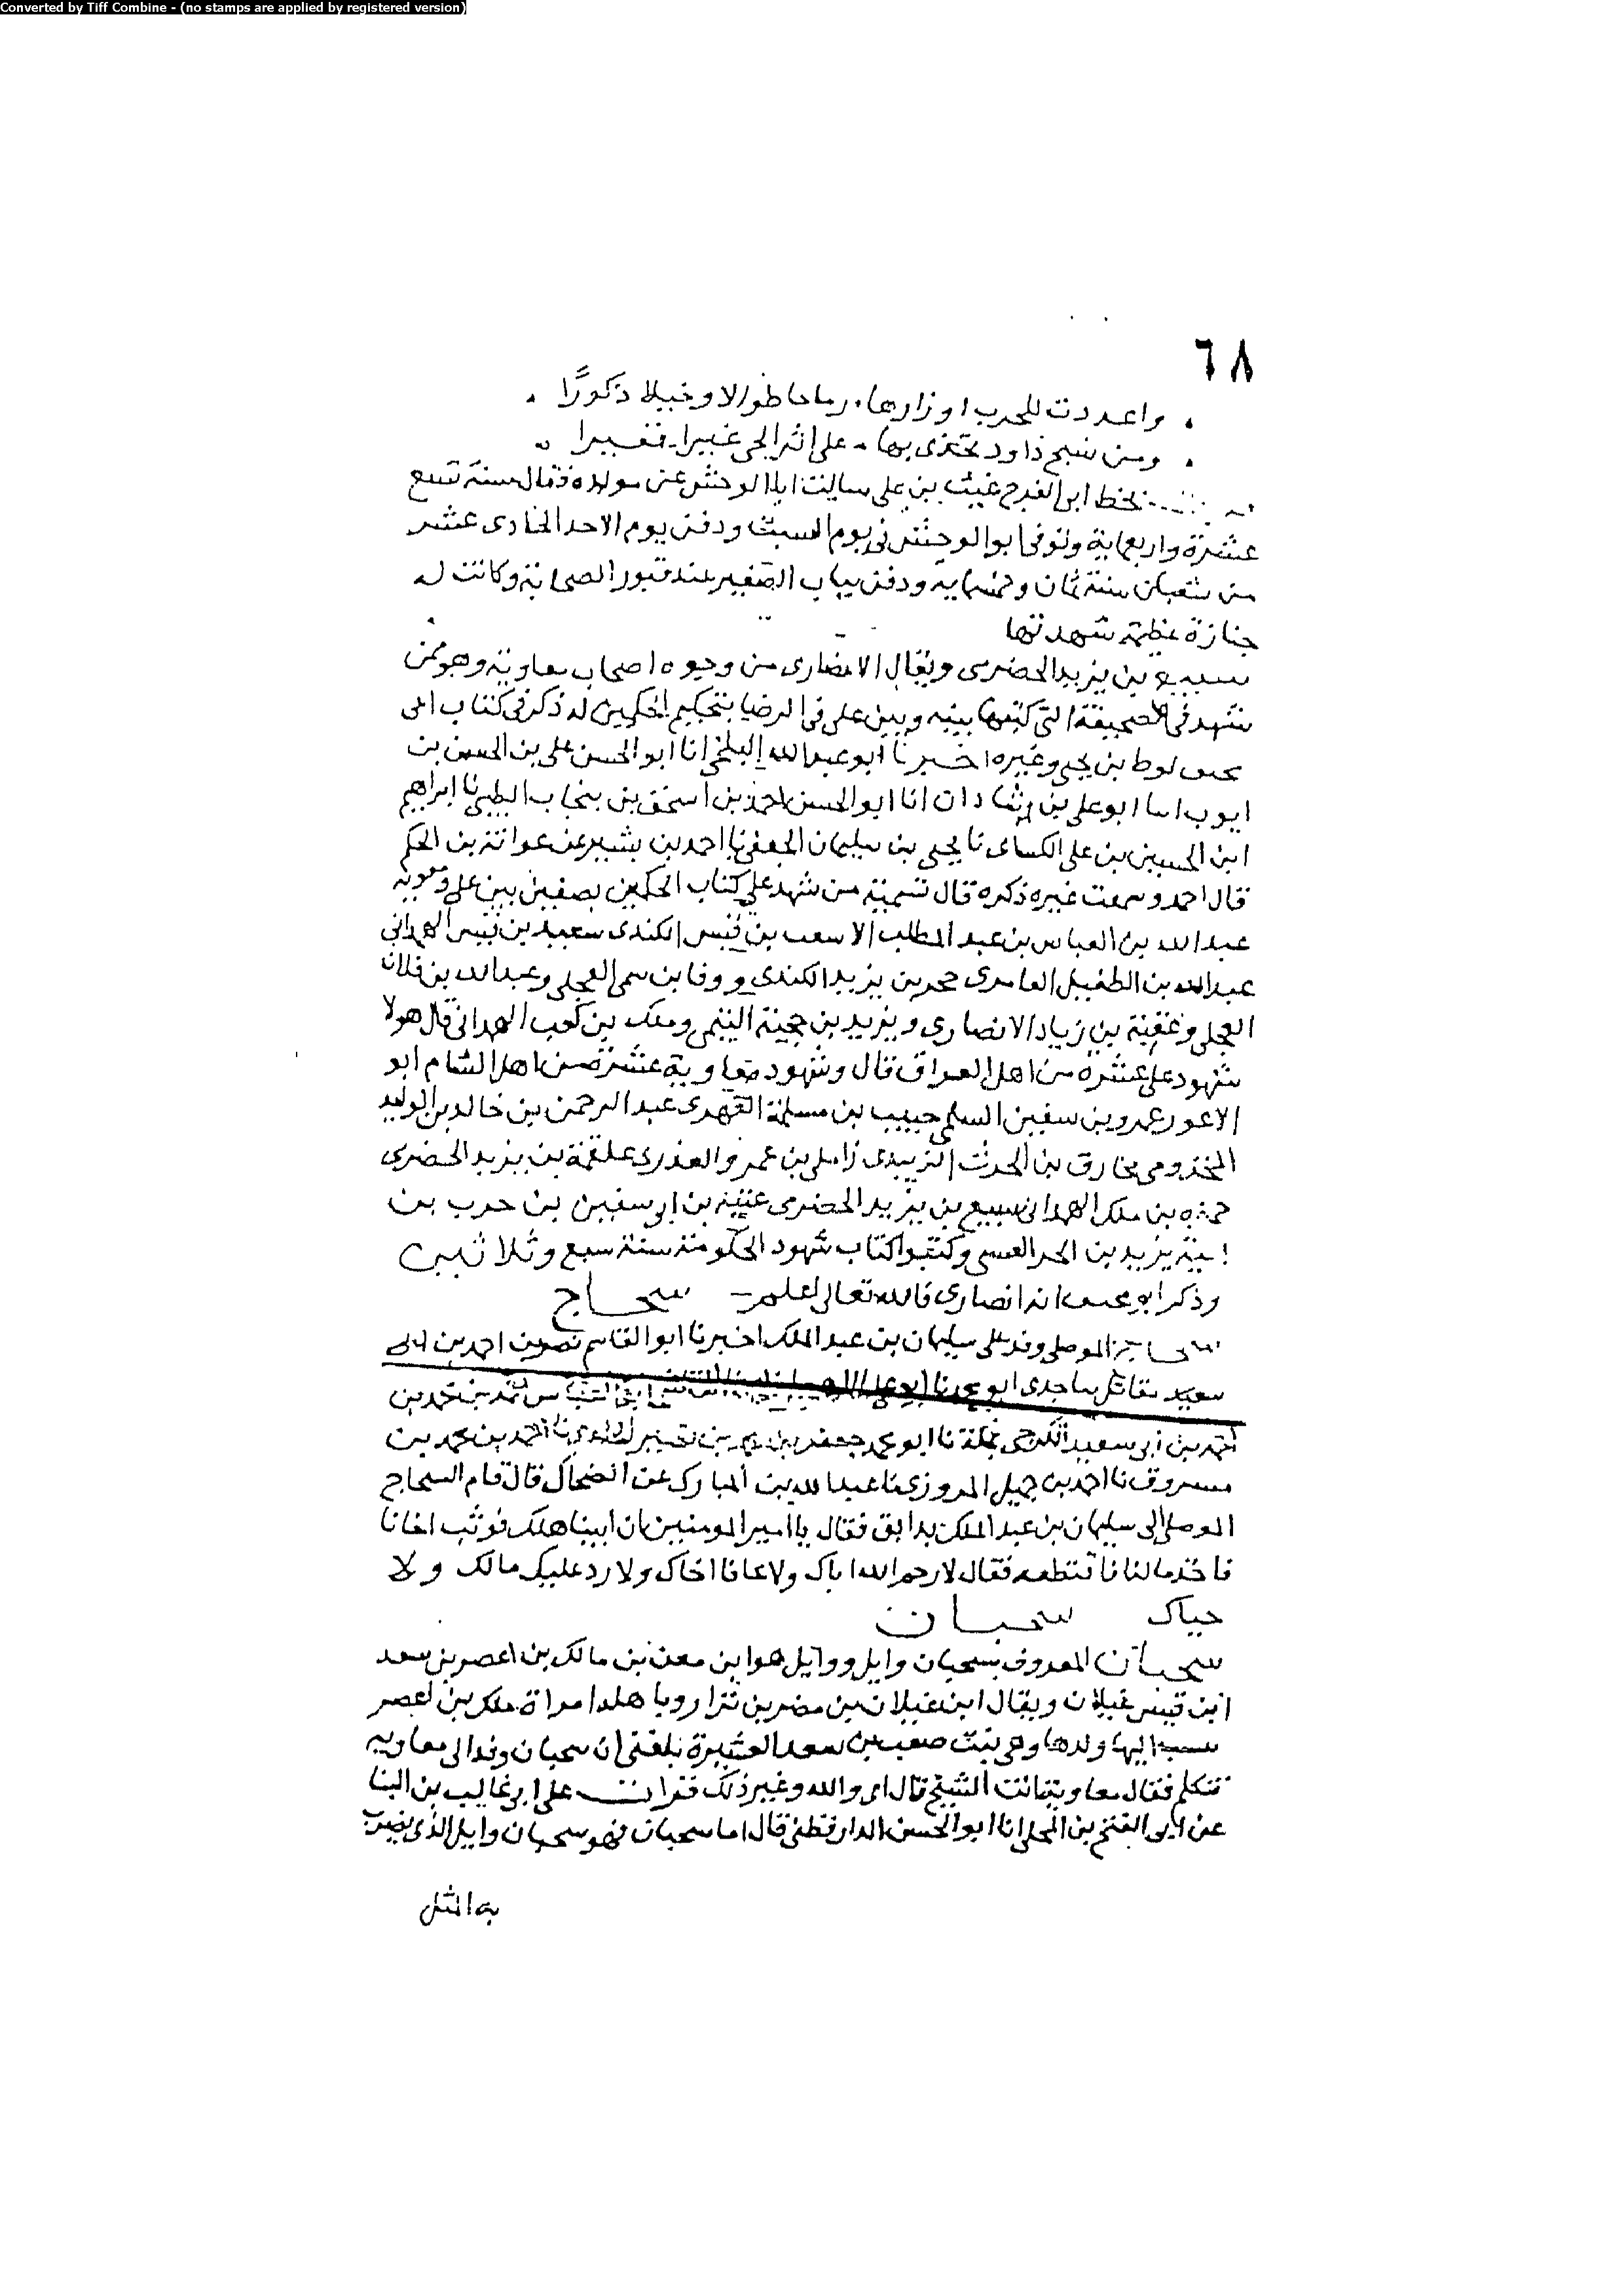 Converted by Tiff Combine - (no stamps are applied by registered version)
٦٨
واعددت للحرب اوزارها . رماحا طوالا وخيلا ذكورًا
ومن نسج داود يحدى بها . على اثر الحى عيرا فعيرا
بخط ابى الفرج غيث بن على سالت ابا الوحش عن مولده فقال سنة تسع
عشرة واربعماية وتوفى ابو الوحش فى يوم السبت ودفن يوم الاحد الحادى عشر
من شعبان سنة ثمان وخمسماية ودفن بباب الصغير عند قبور الصحابة وكانت له
جنازة عظيمة شهدتها
سبيع بن يزيد الحضرمى ويقال الانصارى من وجوه اصحاب معاوية وهو ممن
شهد فى الصحيفة التى كتبها بينه وبين على فى الرضا بتحكيم الحكمين له ذكر فى كتاب ابى
محنف لوط بن يحيى وغيره اخبرنا ابو عبد الله البلخى انا ابو الحسن على بن الحسين بن
ايوب انا ابو على بن شاذان انا ابو الحسن احمد بن اسحق بن بنجاب الطيبى نا ابراهيم
ابن الحسين بن على الكساى نا يحيى بن سليمان الجعفى نا احمد بن بشير عن عوانة بن الحكم
قال احمد وسمعت غيره ذكره قال تسمية من شهد على كتاب الحكمين بصفين بين على ومعوية
عبد الله بن العباس بن عبد المطلب الاسعث بن قيس الكندى سعيد بن قيس الهمدانى
عبد الله بن الطفيل العامرى حجر بن يزيد الكندى وورقا بن سمى العجلى وعبد الله بن فلان
العجلى وعقبة بن زياد الانصارى ويزيد بن حجية التيمى وملك بن كعب الهمدانى قال هولا
شهود على عشرة من اهل العراق قال وشهود معاوية عشرة من اهل الشام ابو
الاعور عمرو بن سفين السلمى حبيب بن مسلمة الفهرى عبد الرحمن بن خالد بن الوليد
المخزومى مخارق بن الحرث الزبيدى زامل بن عمرو العذرى علقمة بن يزيد الحضرمى
حمزه بن ملك الهمدانى سبيع بن يزيد الحضرمى عتبة بن ابى سفين بن حرب بن
امية يزيد بن الحر العبسى وكتبوا كتاب شهود الحكومة سنة سبع وثلاثين
وذكر ابو محنف انه انصارى فالله تعالى اعلم سحاج
سحاج الموصلى وفد على سليمان بن عبد الملك اخبرنا ابو القاسم نصر بن احمد بن
سعيد مقاتل نا جدى ابو محمد نا ابو على محمد بن
احمد بن ابى سعيد الكرجى بمكة نا ابو محمد جعفر بن محمد بن نصير نا احمد بن محمد بن
مسروق نا احمد بن جميل المروزى نا عبد الله بن المبارك عن الضحاك قال قام السحاج
الموصلى الى سليمان بن عبد الملك بدابق فقال يا امير المومنين ان ابينا هلك فوثب اخانا
فاخذ مالنا فاقتطعه فقال لا رحم الله اباك ولا عافا اخاك ولا رد عليك مالك ولا
حياك سحبان
سحبان المعروف بسحبان وايل ووايل هو ابن معن بن مالك بن اعصر بن سعد
ابن قيس عيلان ويقال ابن عيلان بن مضر بن نزار وباهله امراة ملك بن اعصر
نسب اليها ولدها وهى بنت صعب بن سعد العشيرة بلغنى ان سحبان وفد الى معاويه
فتكلم فقال معاوية انت الشيخ قال اى والله وغير ذلك قرات على ابى غالب بن البنا
عن ابى الفتح بن المحلى انا ابو الحسن الدارقطنى قال اما سحبان فهو سحبان وايل الذى يضرب
به المثل